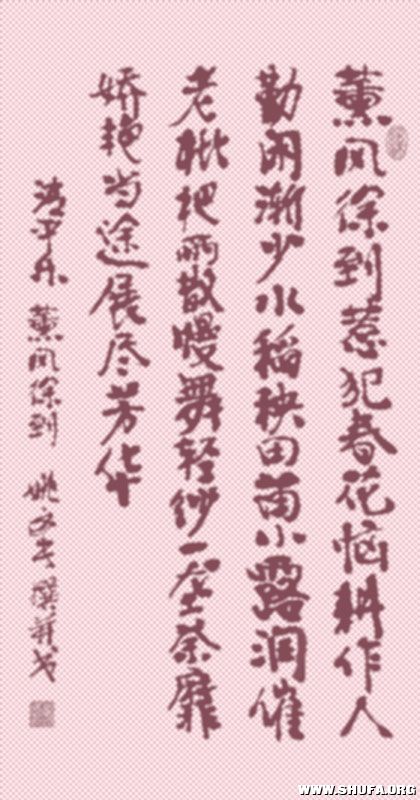 薰风徐到惹犯春花恼耕作人
勤闲渐少水稻秧田苗小露润催
老枇杷雨散慢舞轻纱一垄荼靡
娇艳当途展尽芳华
清平乐 薰风徐到 姚撰并书
WWW.SHUFA.ORG